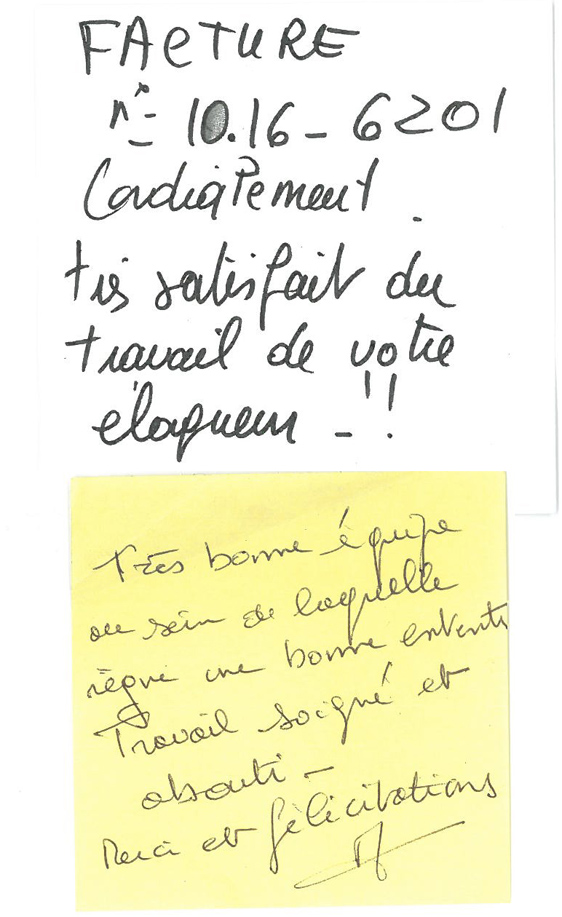 FACTURE
n° 10.16 - 6201
Cordialement.
très satisfait du
travail de votre
élagueur - !!
Très bonne équipe
au sein de laquelle
règne une bonne entente
Travail soigné et
abouti -
Merci et félicitations